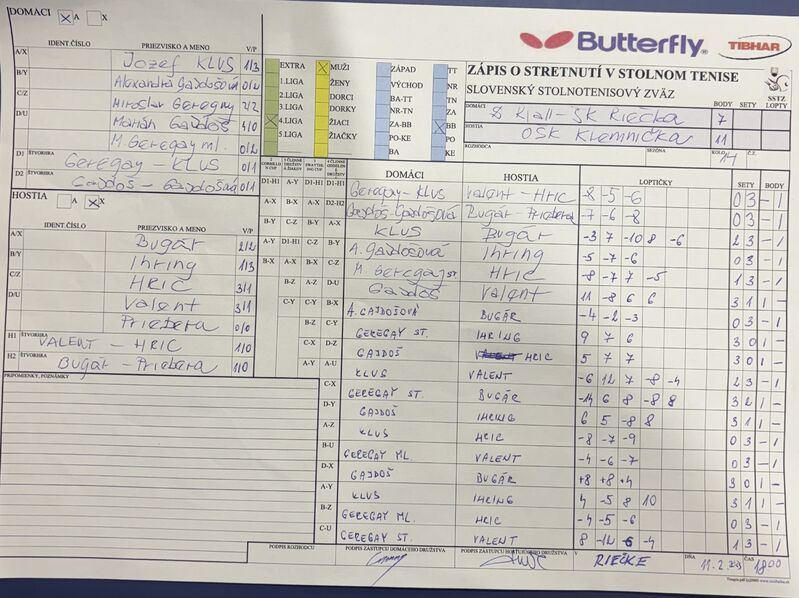 DOMÁCI X A X
IDENT.ČÍSLO PRIEZVISKO A MENO V/P
A/X Jozef KLUS 1/3
B/Y Alexandra Gajdošová 0/2
C/Z Miroslav Geregay 2/2
D/U Marián Gajdoš 4/0
M. Geregay ml. 0/2
D1 ŠTVORHRA Geregay - KLUS 0/1
D2 ŠTVORHRA Gajdoš - Gajdošová 0/1
HOSTIA A X X
IDENT.ČÍSLO PRIEZVISKO A MENO V/P
A/X Bugár 2/2
B/Y Ihring 1/3
C/Z HRIC 3/1
D/U Valent 3/1
Priebera 0/0
H1 ŠTVORHRA VALENT - HRIC 1/0
H2 ŠTVORHRA Bugár - Priebera 1/0
PRIPOMIENKY, POZNÁMKY
EXTRA X MUŽI ZÁPAD TT
1.LIGA ŽENY VÝCHOD NR
2.LIGA DORCI BA-TT TN
3.LIGA DORKY NR-TN ZA
X 4.LIGA ŽIACI ZA-BB X BB
5.LIGA ŽIAČKY PO-KE PO
BA KE
Butterfly
TIBHAR
ZÁPIS O STRETNUTÍ V STOLNOM TENISE
SLOVENSKÝ STOLNOTENISOVÝ ZVÄZ
SSTZ
DOMÁCI ŠK Riečka BODY 7 SETY LOPTY
HOSTIA OŠK Kremnička 11
ROZHODCA SEZÓNA KOLO 14 Č.Z.
DOMÁCI HOSTIA LOPTIČKY SETY BODY
D1-H1 A-Y D1-H1 D1-H1 Geregay - KLUS Valent - HRIC -8 -5 -6 0 3 - 1
A-X B-X A-X D2-H2 Gajdoš-Gajdošová Bugár-Priebera -7 -6 -8 0 3 - 1
B-Y C-Z B-Y A-X KLUS Bugár -3 7 -10 8 -6 2 3 - 1
A-Y D1-H1 C-Z B-Y A. Gajdošová Ihring -5 -7 -6 0 3 - 1
B-X A-X B-X C-Z M. Geregay st. HRIC -8 -7 7 -5 1 3 - 1
B-Z A-Z D-U Gajdoš Valent 11 -8 6 6 3 1 1 -
C-Y C-Y B-X A. GAJDOŠOVÁ BUGÁR -4 -2 -3 0 3 - 1
B-Z C-Y GEREGAY ST. IHRING 9 7 6 3 0 1 -
C-X D-Z GAJDOŠ HRIC 5 7 7 3 0 1 -
A-Y A-U KLUS VALENT -6 12 7 -8 -4 2 3 - 1
C-X GEREGAY ST. BUGÁR -14 6 8 -8 8 3 2 1 -
D-Y GAJDOŠ IHRING 6 5 -8 8 3 1 1 -
A-Z KLUS HRIC -8 -7 -9 0 3 - 1
B-U GEREGAY ML. VALENT -4 -6 -7 0 3 - 1
D-X GAJDOŠ BUGÁR +8 +8 +4 3 0 1 -
A-Y KLUS IHRING 4 -5 8 10 3 1 1 -
B-Z GEREGAY ML. HRIC -4 -5 -6 0 3 - 1
C-U GEREGAY ST. VALENT 8 -12 -6 -4 1 3 - 1
PODPIS ROZHODCU PODPIS ZÁSTUPCU DOMÁCEHO DRUŽSTVA PODPIS ZÁSTUPCU HOSŤUJÚCEHO DRUŽSTVA V RIEČKE DŇA 11.2. ČAS 18 00